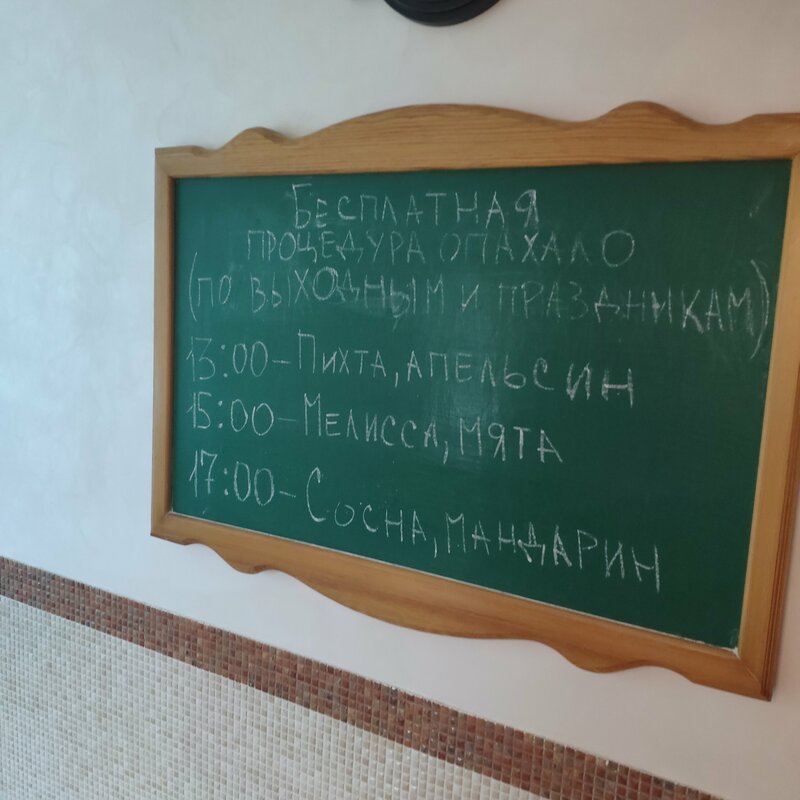 БЕСПЛАТНАЯ
ПРОЦЕДУРА ОПАХАЛО
(ПО ВЫХОДНЫМ И ПРАЗДНИКАМ)
13:00-ПИХТА, АПЕЛЬСИН
15:00-МЕЛИССА, МЯТА
17:00-СОСНА, МАНДАРИН